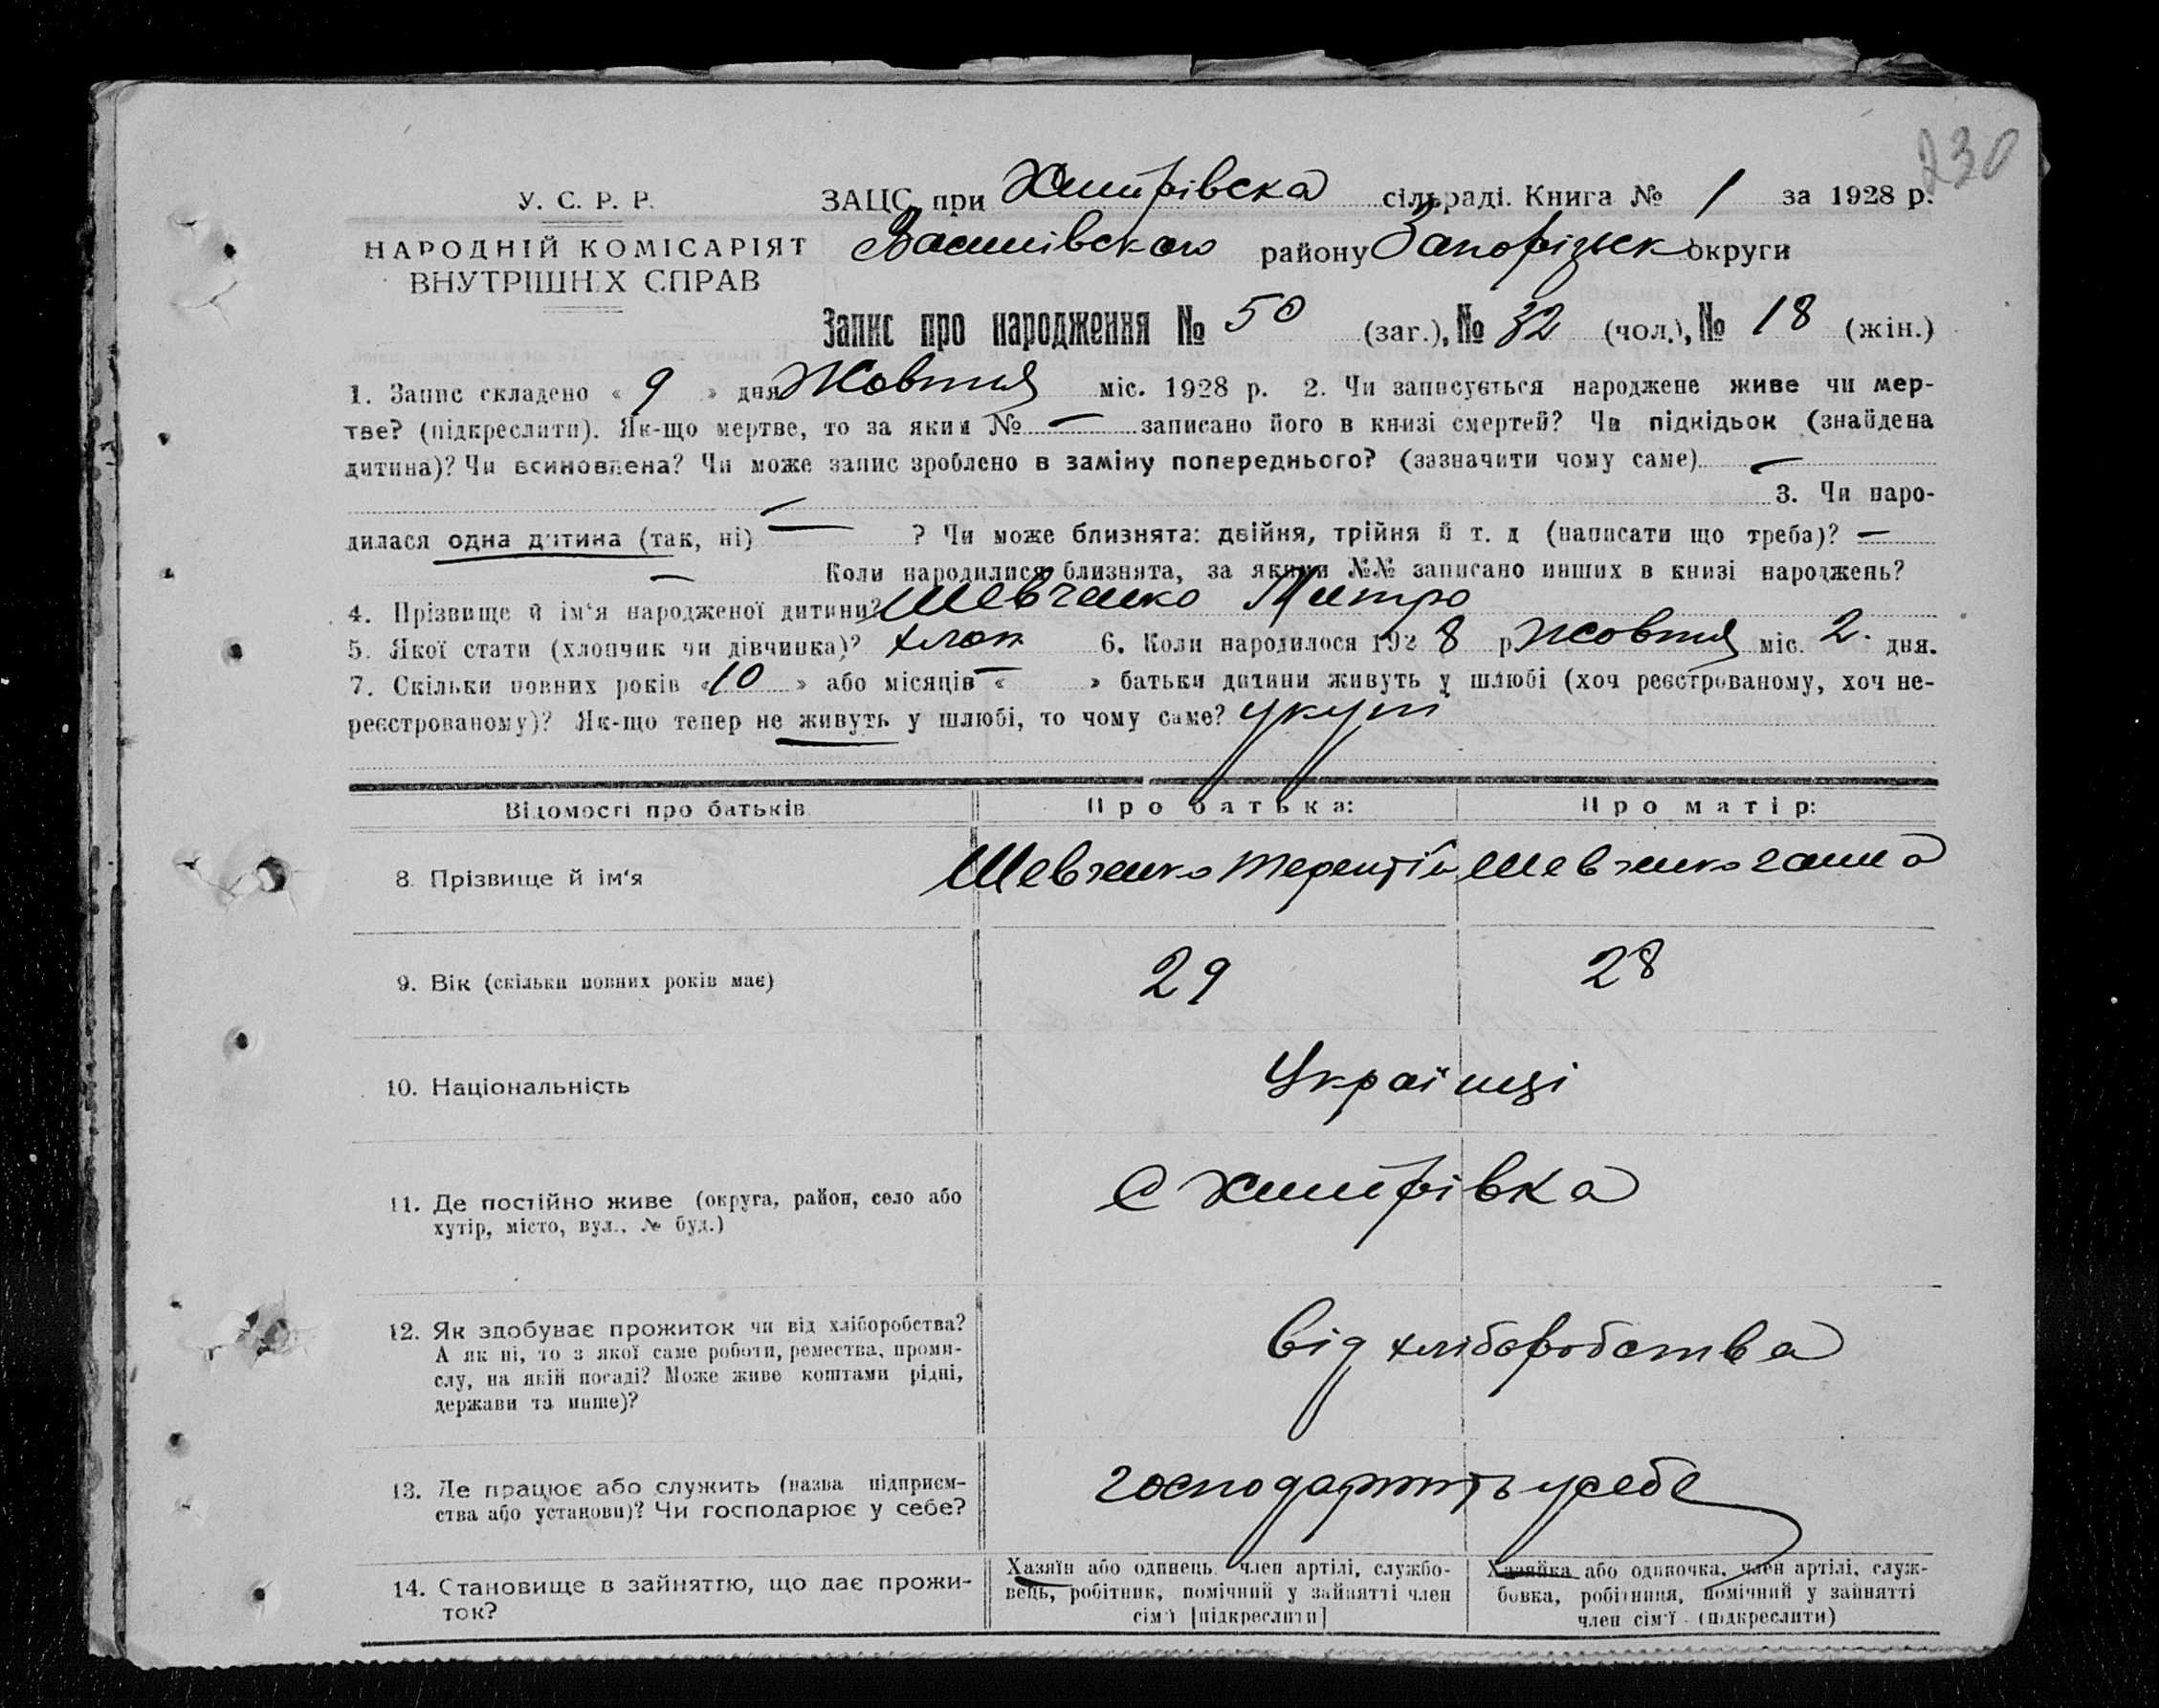 230
У. С. Р. Р.
НАРОДНІЙ КОМІСАРІЯТ
ВНУТРІШНІХ СПРАВ
ЗАЦС при Хитрівска сільраді. Книга № 1 за 1928 р.
Василівского району Запоріжск округи
Запис про народження № 50 (заг.), № 32 (чол.), № 18 (жін.)
1. Запис складено « 9 » дня Жовтня міс. 1928 р. 2. Чи записується народжене живе чи мер-
тве? (підкреслити). Як-що мертве, то за яким № — записано його в книзі смертей? Чи підкідьок (знайдена
дитина)? Чи всиновлена? Чи може запис зроблено в заміну попереднього? (зазначити чому саме) —
— 3. Чи наро-
дилася одна дитина (так, ні) — ? Чи може близнята: двійня, трійня й т. д (написати що треба)? —
— Коли народилися близнята, за якими №№ записано инших в книзі народжень?
4. Прізвище й ім‘я народженої дитини? Шевченко Митро
5. Якої стати (хлопчик чи дівчинка)? хлоп 6. Коли народилося 1928 р Жовтня міс. 2. дня.
7. Скільки повних років «10» або місяців « — » батьки дитини живуть у шлюбі (хоч реєстрованому, хоч не-
реєстрованому)? Як-що тепер не живуть у шлюбі, то чому саме? укупі
Відомості про батьків
Про батька:
Про матір:
8. Прізвище й ім‘я
Шевченко Терентій
Шевченко Ганна
9. Вік (скільки повних років має)
29
28
10. Національність
Українці
11. Де постійно живе (округа, район, село або
хутір, місто, вул., № буд.)
С Хитрівка
12. Як здобуває прожиток чи від хліборобства?
А як ні, то з якої саме роботи, ремества, проми-
слу, на якій посаді? Може живе коштами рідні,
держави та инше)?
від хліборобства
13. Де працює або служить (назва підприєм-
ства або установи)? Чи господарює у себе?
господарюють у себе
14. Становище в зайняттю, що дає прожи-
ток?
Хазяїн або одинець, член артілі, службо-
вець, робітник, помічний у зайнятті член
сім‘ї [підкреслити]
Хазяйка або одиночка, член артілі, служ-
бовка, робітниця, помічний у зайнятті
член сім‘ї (підкреслити)